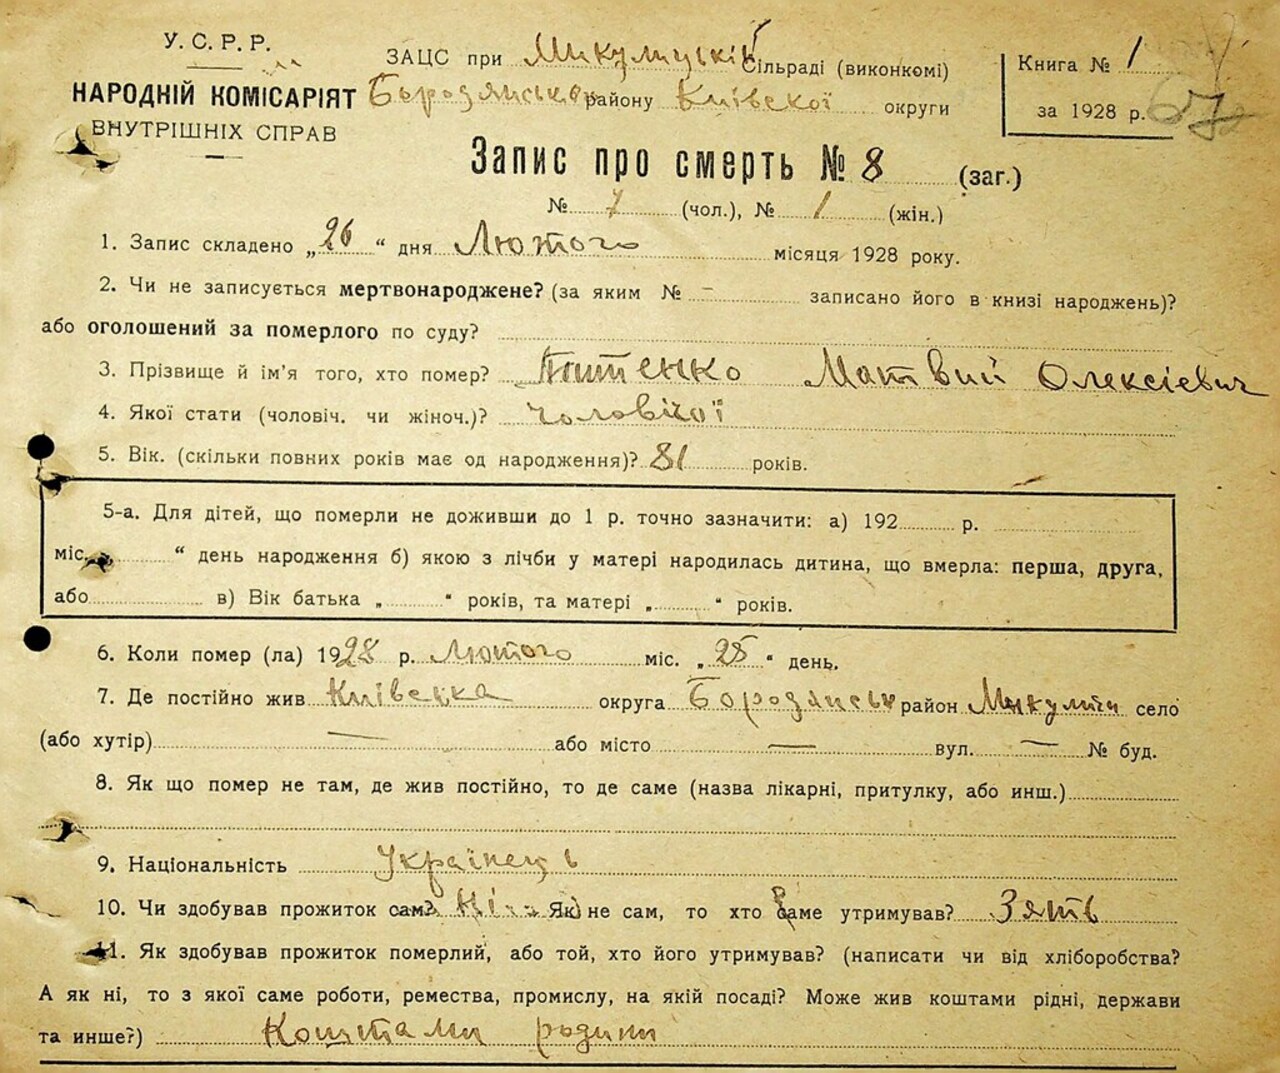 У. С. Р. Р.
НАРОДНІЙ КОМІСАРІЯТ
ВНУТРІШНІХ СПРАВ
ЗАЦС при Микулицькій Сільраді (виконкомі)
Бородянського району Київскої округи
Книга № 1
за 1928 р.
67
Запис про смерть № 8 (заг.)
№ 7 (чол.), № 1 (жін.)
1. Запис складено „26“ дня Лютого місяця 1928 року.
2. Чи не записується мертвонароджене? (за яким № - записано його в книзі народжень)?
або оголошений за померлого по суду?
3. Прізвище й ім'я того, хто помер? Матвий Олексієвич
4. Якої стати (чоловіч. чи жіноч.)? чоловічої
5. Вік. (скільки повних років має од народження)? 81 років.
5-а. Для дітей, що померли не доживши до 1 р. точно зазначити: а) 192 р.
міс. “ день народження б) якою з лічби у матері народилась дитина, що вмерла: перша, друга,
або в) Вік батька „ “ років, та матері „ “ років.
6. Коли помер (ла) 1928 р. Лютого міс. „25“ день.
7. Де постійно жив Київська округа Бородянськ район Микуличі село
(або хутір) — або місто — вул. — № буд.
8. Як що помер не там, де жив постійно, то де саме (назва лікарні, притулку, або инш.)
9. Національність Українець
10. Чи здобував прожиток сам? Ні Як не сам, то хто саме утримував? Зять
11. Як здобував прожиток померлий, або той, хто його утримував? (написати чи від хліборобства?
А як ні, то з якої саме роботи, ремества, промислу, на якій посаді? Може жив коштами рідні, держави
та инше?) Коштами родини